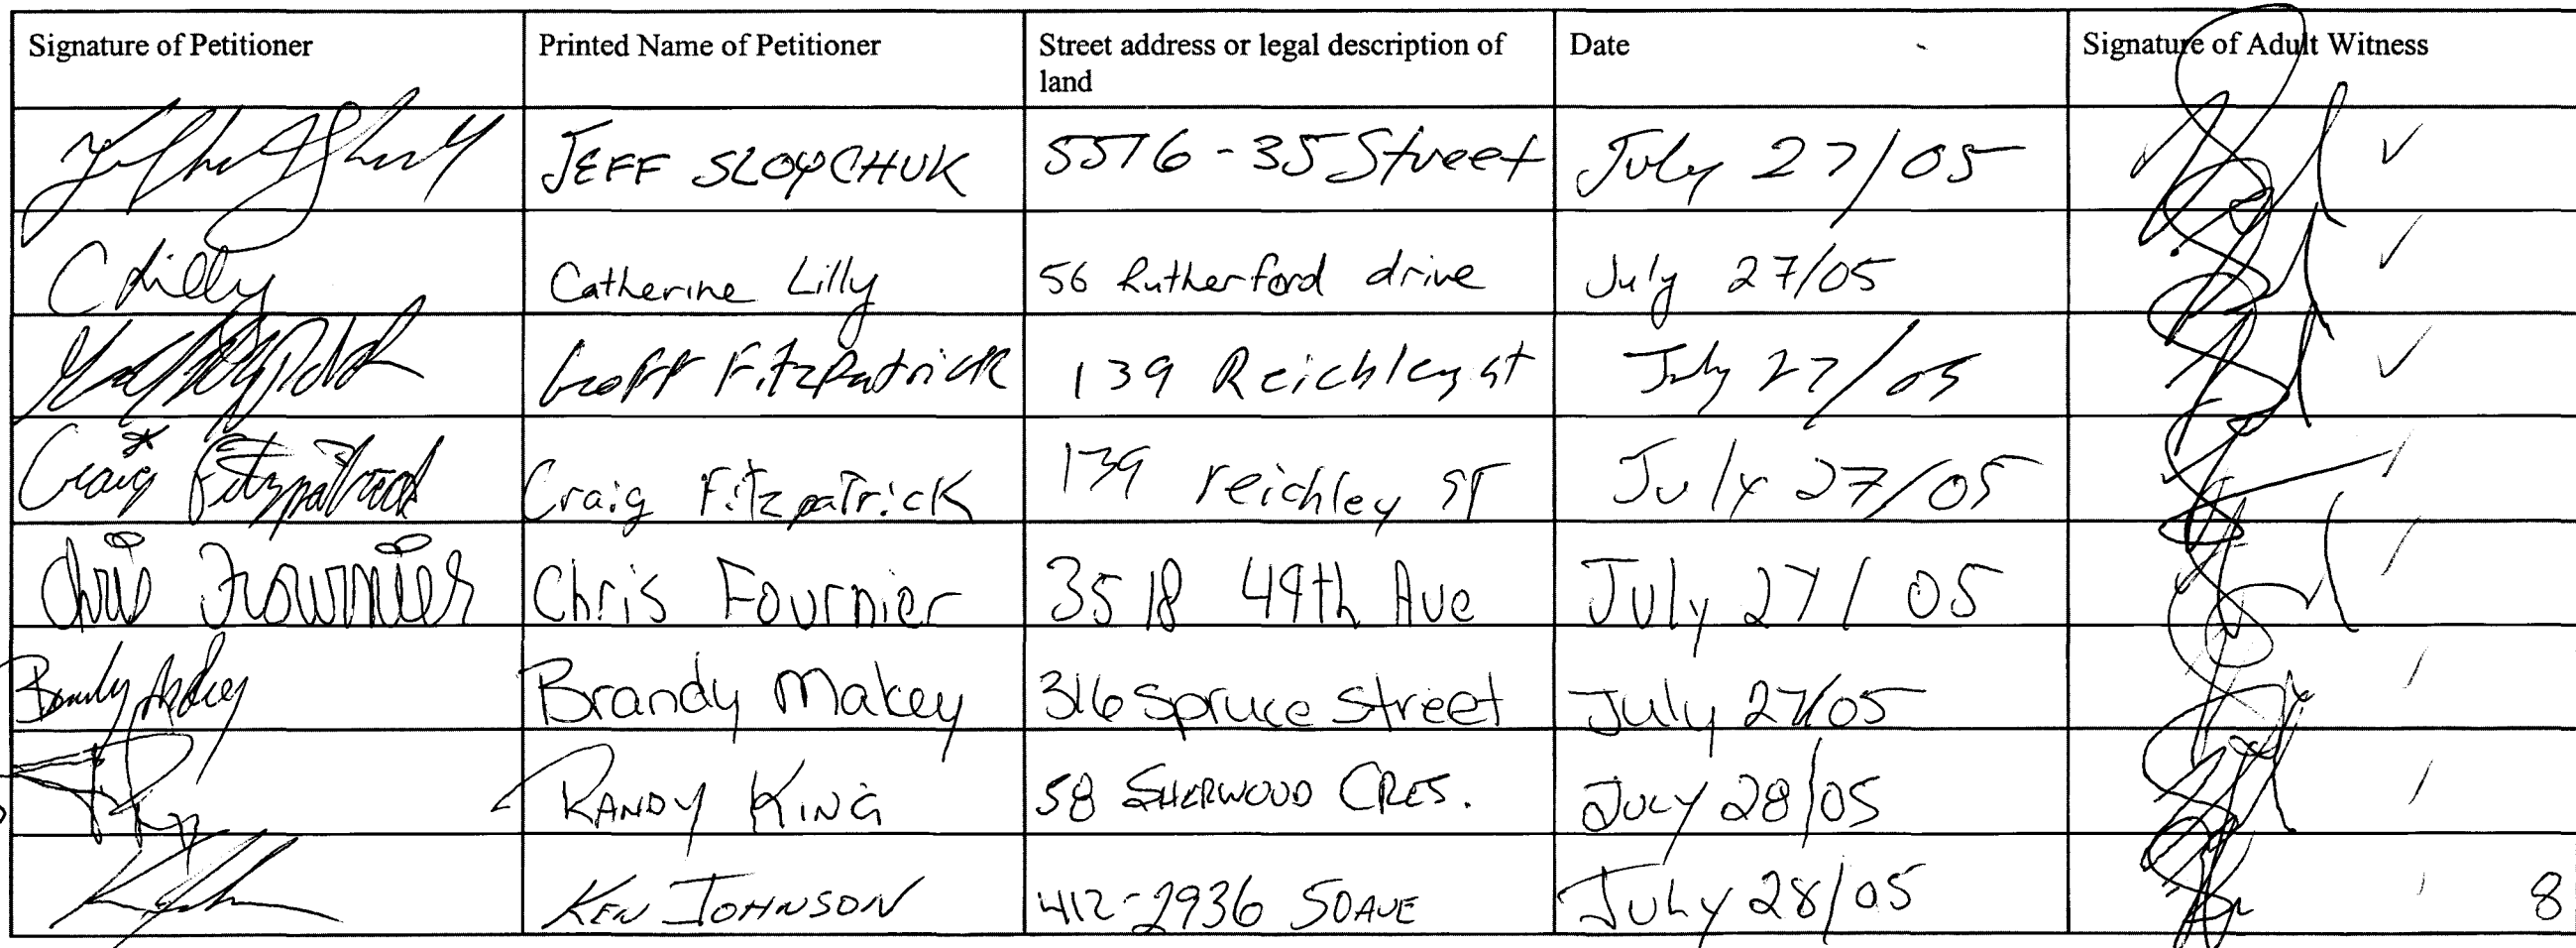 Signature of Petitioner Printed Name of Petitioner Street address or legal description of Date Signature of Adult Witness
land
JEFF SLOYCHUK 5576-35 Street July 27/05
CLilly Catherine Lilly 56 Rutherford drive July 27/05
Geoff Fitzpatrick 139 Reichley st July 27/05
Craig Fitzpatrick Craig Fitzpatrick 139 reichley ST July 27/05
Chris Fournier Chris Fournier 3518 49th Ave July 27/05
Brandy Makey Brandy Makey 316 Spruce Street July 27/05
RANDY KING 58 SHERWOOD CRES. JULY 28/05
KEN JOHNSON 412-2936 50AVE July 28/05 8